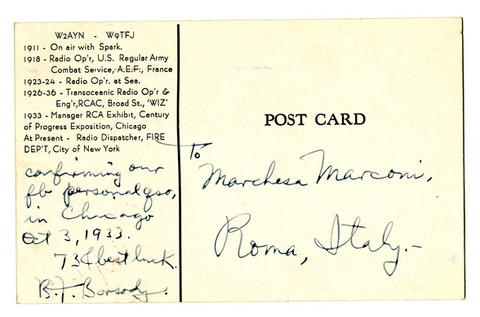 W2AYN - W9TFJ
1911 - On air with Spark.
1918 - Radio Op'r, U.S. Regular Army
Combat Service, A.E.F., France
1923-24 - Radio Op'r. at Sea.
1926-36 - Transoceanic Radio Op'r &
Eng'r, RCAC, Broad St., 'WIZ'
1933 - Manager RCA Exhibit, Century
of Progress Exposition, Chicago
At Present - Radio Dispatcher, FIRE
DEP'T, City of New York
confirming our
fb personal qso,
in Chicago
Oct 3, 1933.
73 & best luck.
B.F. Borsody.
POST CARD
To
Marchesa Marconi,
Roma, Italy.-